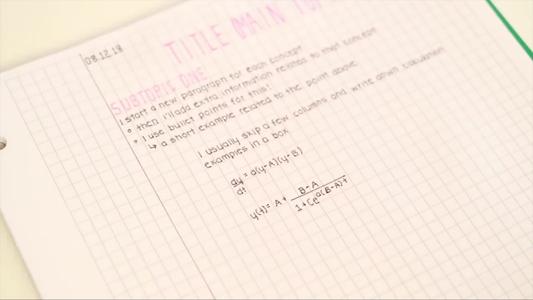 08.12.18
TITLE MAIN TOP
SUBTOPIC ONE
I start a new paragraph for each concept
• then I'll add extra information related to that concept
• I use bullet points for this!
↳ a short example related to the point above.
I usually skip a few columns and write down calculation
examples in a box
dy/dt = a(y-A)(y-B)
y(t) = A + (B-A)/(1+Ce^(a(B-A)t))